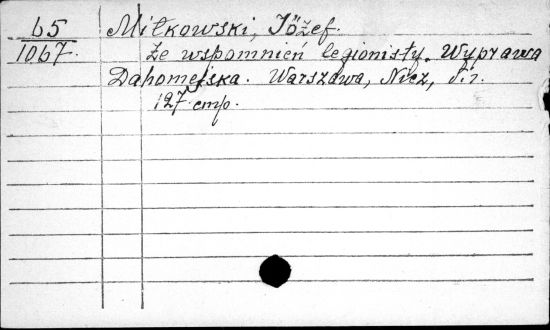 65
1067.
Miłkowski, Józef.
Ze wspomnień legionisty. Wyprawa
Dahomejska. Warszawa, Nicz, s.r.
127. cmp.